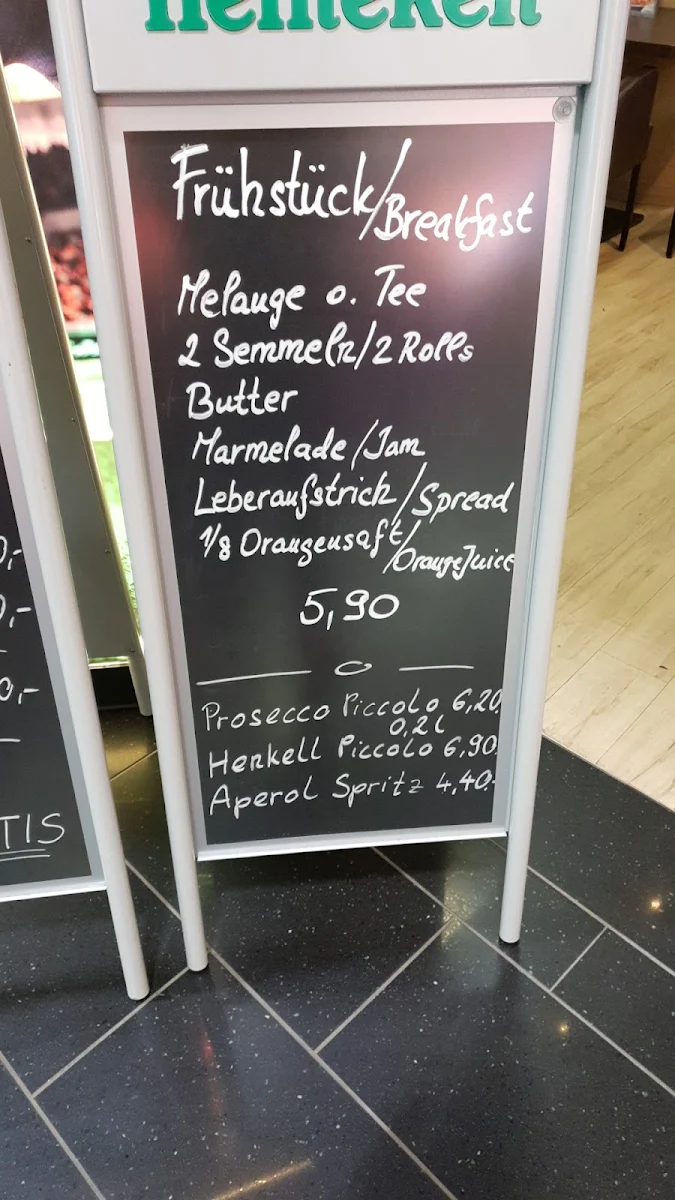 Heineken
Frühstück/Breakfast
Melange o. Tee
2 Semmeln/2 Rolls
Butter
Marmelade/Jam
Leberaufstrich/Spread
1/8 Orangensaft/OrangeJuice
5,90
Prosecco Piccolo 6,20
0,2l
Henkell Piccolo 6,90
Aperol Spritz 4,40.-
TIS